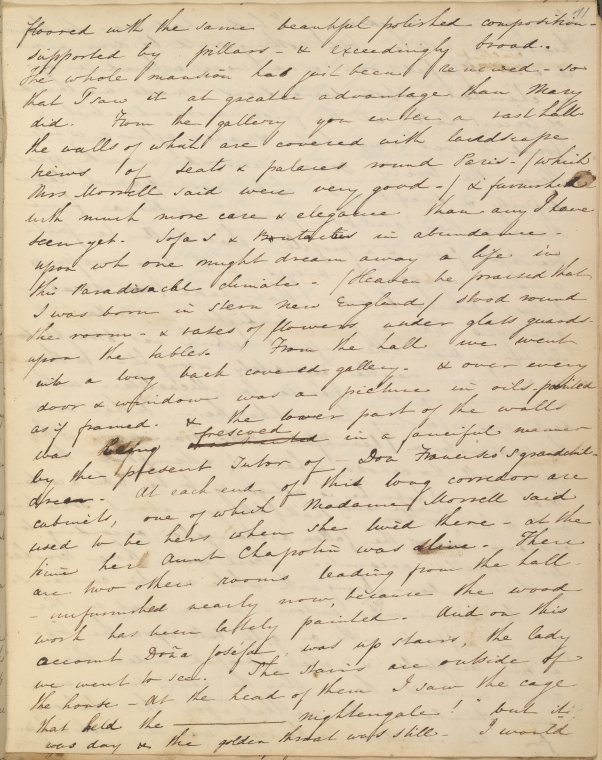 floored with the same beautiful polished composition -
supported by pillars - & exceedingly broad..
The whole mansion has just been renewed - so
that I saw it at greater advantage than Mary
did. From the gallery you enter a vast hall
the walls of which are covered with landscape
views of seats & palaces round Paris - (which
Mrs Morrell said were very good -) & furnished
with much more care & elegance than any I have
seen yet. Sofas & in abundance -
upon wh one might dream away a life in
this Paradisacal climate - (Heaven be praised that
I was born in stern New England) stood round
the room - & vases of flowers under glass guards -
upon the tables. From the hall we went
into a long back covered gallery. & over every
door & window was a picture in oils - painted
as if framed. & the lower part of the walls
was frescoed in a fanciful manner
by the present Tutor of - Don Francisko's grandchil-
dren. At each end of this long corridor are
cabinets, one of which Madame Morrell said
used to be hers when she lived there - at the
time her Aunt Chapotin was alive. There
are two other rooms leading from the hall -
- unfurnished nearly now, because the wood
work has been lately painted - And on this
account Doña Josefa, was up stairs, the lady
we went to see. The stairs are outside of
the house - At the head of them I saw the cage
that held the ——— nightengale! " but it
was day & the golden throat was still - I would